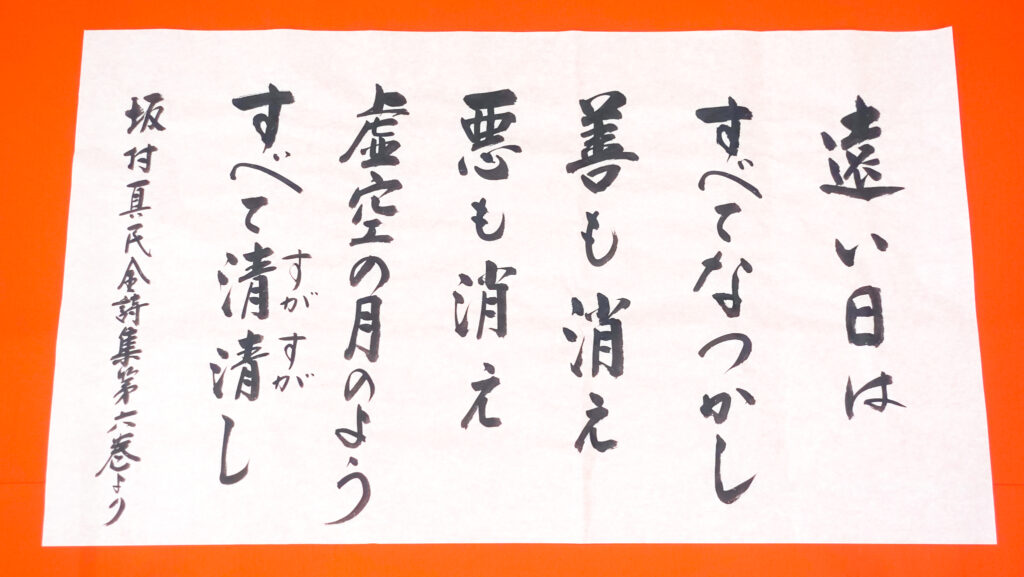 遠い日は
すべてなつかし
善も消え
悪も消え
虚空の月のよう
すべて清清し
すがすが
坂村真民全詩集第六巻より